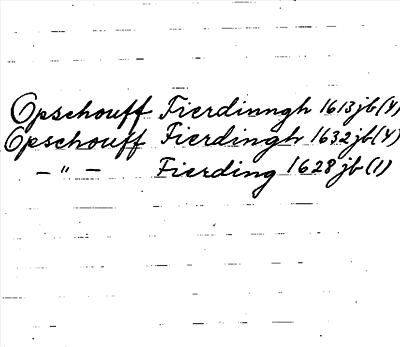 Opschouff Fierdinngh 1613 jb (4)
Opschouff Fierdingh 1632 jb (4)
— " — Fierding 1628 jb (1)